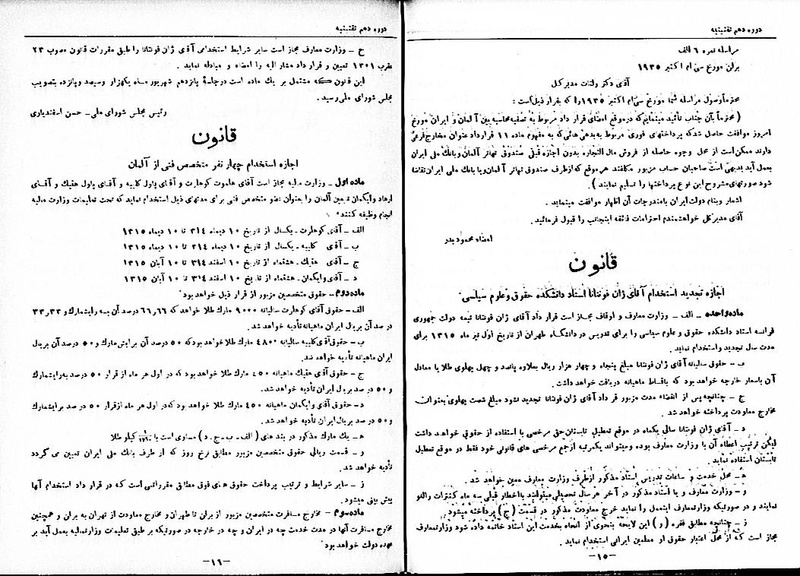 دوره دهم تقنینیه
مراسله نمره ۶ الف
برلن مورخ سی ام اکتبر ۱۹۳۵
آقای دکتر ولتات مدیر کل
محترماً وصول مراسله شما مورخ سی ام اکتبر ۱۹۳۵ را که بقرار ذیل است :
( محترماً بآن جناب تأیید مینمایم که در موقع امضای قرار داد مربوط به تصفیه محاسبه بین آلمان و ایران مورخ
امروز موافقت حاصل شد که پرداختهای فوری مربوط به بدهی هائی که به مفهوم ماده ۱۱ قرارداد عنوان مخارج فرعی
دارند ممکن است از محل وجوه حاصله از فروش مال التجاره بدون اجازه قبلی صندوق تهاتر آلمان و بانک ملی ایران
بعمل آید بدیهی است صاحبان حساب مزبور مکلفند هر موقع که از طرف صندوق تهاتر آلمان و یا بانک ملی ایران تقاضا
شود صورتهای مشروح این نوع پرداختها را تسلیم نمایند ) .
اشعار و بنام دولت ایران با مندرجات آن اظهار موافقت مینماید .
آقای مدیر کل خواهشمندم احترامات فائقه اینجانب را قبول فرمائید .
امضاء محمود بدر
قانون
اجازه تجدید استخدام آقای ژان فونتانا استاد دانشکده حقوق و علوم سیاسی
ماده واحده - الف - وزارت معارف و اوقاف مجاز است قرار داد آقای ژان فونتانا تبعه دولت جمهوری
فرانسه استاد دانشکده حقوق و علوم سیاسی را برای تدریس در دانشگاه طهران از تاریخ اول تیر ماه ۱۳۱۵ برای
مدت سال تجدید و استخدام نماید .
ب - حقوق سالیانه آقای ژان فونتانا مبلغ پنجاه و چهار هزار ریال بعلاوه پانصد و چهل پهلوی طلا یا معادل
آن باسعار خارجه خواهد بود که باقساط ماهیانه دریافت خواهد داشت .
ج - چنانچه پس از انقضاء مدت مزبور قرار داد آقای ژان فونتانا تجدید نشود مبلغ شصت پهلوی بعنوان
مخارج معاودت پرداخته خواهد شد .
د - آقای ژان فونتانا سالی یکماه در موقع تعطیل تابستان حق مرخصی با استفاده از حقوق خواهد داشت
لیکن ترتیب اعطاء آن با وزارت معارف بوده و میتواند یکمرتبه از جمع مرخصی های قانونی خود فقط در موقع تعطیل
تابستان استفاده نماید .
ه - محل خدمت و ساعات تدریس استاد مذکور از طرف وزارت معارف معین خواهد شد .
و - وزارت معارف و یا استاد مذکور در آخر هر سال تحصیلی میتوانند با اخطار قبلی سه ماه کنترات را لغو
نمایند و در صورتیکه وزارت معارف اینعمل را نماید خرج معاودت مذکور در قسمت ( ج ) پرداخته میشود .
ز - چنانچه مطابق فقره ( و ) این لایحه بنحوی از انحاء بخدمت این استاد خاتمه داده شود وزارت معارف
مجاز است که از محل اعتبار حقوق او معلمین ایرانی استخدام نماید .
-۱۵-
دوره دهم تقنینیه
ح - وزارت معارف مجاز است سایر شرایط استخدامی آقای ژان فونتانا را طبق مقررات قانون مصوب ۲۳
عقرب ۱۳۰۱ تعیین و قرار داد مشار الیه را امضاء و مبادله نماید .
این قانون که مشتمل بر یک ماده است در جلسهٔ پانزدهم شهریور ماه یکهزار و سیصد و پانزده بتصویب
مجلس شورای ملی رسید .
رئیس مجلس شورای ملی - حسن اسفندیاری
قانون
اجازه استخدام چهار نفر متخصص فنی از آلمان
ماده اول - وزارت مالیه مجاز است آقای هلموت کوهلرت و آقای پاول کلیبه و آقای پاول هفیک و آقای
وایکمان تبعین آلمان را بعنوان عضو متخصص فنی برای مدتهای ذیل استخدام نماید که تحت تعلیمات وزارت مالیه
انجام وظیفه کنند :
الف - آقای کوهلرت - یکسال از تاریخ ۱۰ دیماه ۳۱۴ تا ۱۰ دیماه ۱۳۱۵
ب - آقای کلیبه - یکسال از تاریخ ۱۰ دیماه ۳۱۴ تا ۱۰ دیماه ۱۳۱۵
ج - آقای هفیک - هشتماه از تاریخ ۱۰ اسفند ۳۱۴ تا ۱۰ آبان ۱۳۱۵
د - آقای وایکمان - هشتماه از تاریخ ۱۰ اسفند ۳۱۴ تا ۱۰ آبان ۱۳۱۵
ماده دوم - حقوق متخصصین مزبور از قرار ذیل خواهد بود
الف - حقوق آقای کوهلرت سالیانه ۹۰۰۰ مارک طلا خواهد که ۶۶ر۶۶ درصد آن بسه رایشمارک و ۳۳ر۳۳
در صد آن بریال ایران ماهیانه تأدیه خواهد شد .
ب - حقوق آقای کلیبه سالیانه ۴۸۰۰ مارک طلا خواهد بود که ۵۰ درصد آن برایشمارک و ۵۰ درصد آن بریال
ایران ماهیانه تأدیه خواهد شد .
ج - حقوق آقای هفیک ماهیانه ۴۵۰ مارک طلا خواهد بود که در اول هر ماه از قرار ۵۰ درصد به رایشمارک
و ۵۰ در صد بریال ایران تأدیه خواهد شد .
د - حقوق آقای وایکمان ماهیانه ۴۵۰ مارک طلا خواهد بود که در اول هر ماه از قرار ۵۰ در صد برایشمارک
و ۵۰ در صد بریال ایران تأدیه خواهد شد .
ه - یک مارک مذکور در بند های ( الف - ب - ج - د ) مساوی است با کیلو طلا
و - قسمت ریالی حقوق متخصصین مزبور مطابق نرخ روز که از طرف بانک ملی ایران تعیین می گردد
تأدیه خواهد شد .
ز - سایر شرایط و ترتیب پرداخت حقوق های فوق مطابق مقرراتی است که در قرار داد استخدام آنها
پیش بینی میشود .
ماده سوم - مخارج مسافرت متخصصین مزبور از برلن تا طهران و مخارج معاودت از تهران به برلن و همچنین
مخارج مسافرت آنها در مدت خدمت چه در ایران و چه در خارجه در صورتیکه بر طبق تعلیمات وزارت مالیه بعمل آید بر
عهده دولت خواهد بود
-۱۶-